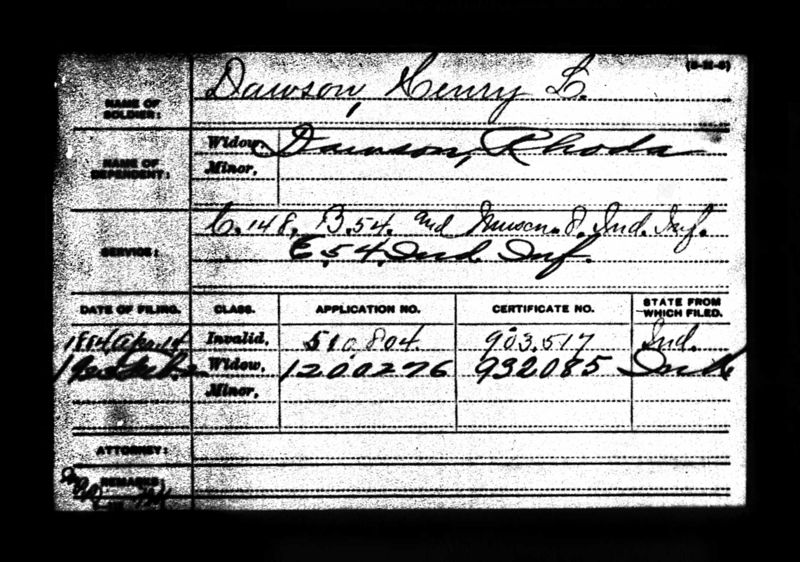 (3-21-6)
NAME OF SOLDIER: Dawson, Henry L.
NAME OF DEPENDENT: Widow, Dawson, Rhoda
Minor,
SERVICE: C. 148, B. 54. and Ind. Inf.
E, 54, Ind. Inf.
DATE OF FILING. CLASS. APPLICATION NO. CERTIFICATE NO. STATE FROM WHICH FILED.
1884 Apr. 14 Invalid, 510.804 903.517 Ind.
Widow, 1200276 932085 Ind
Minor,
ATTORNEY:
REMARKS: